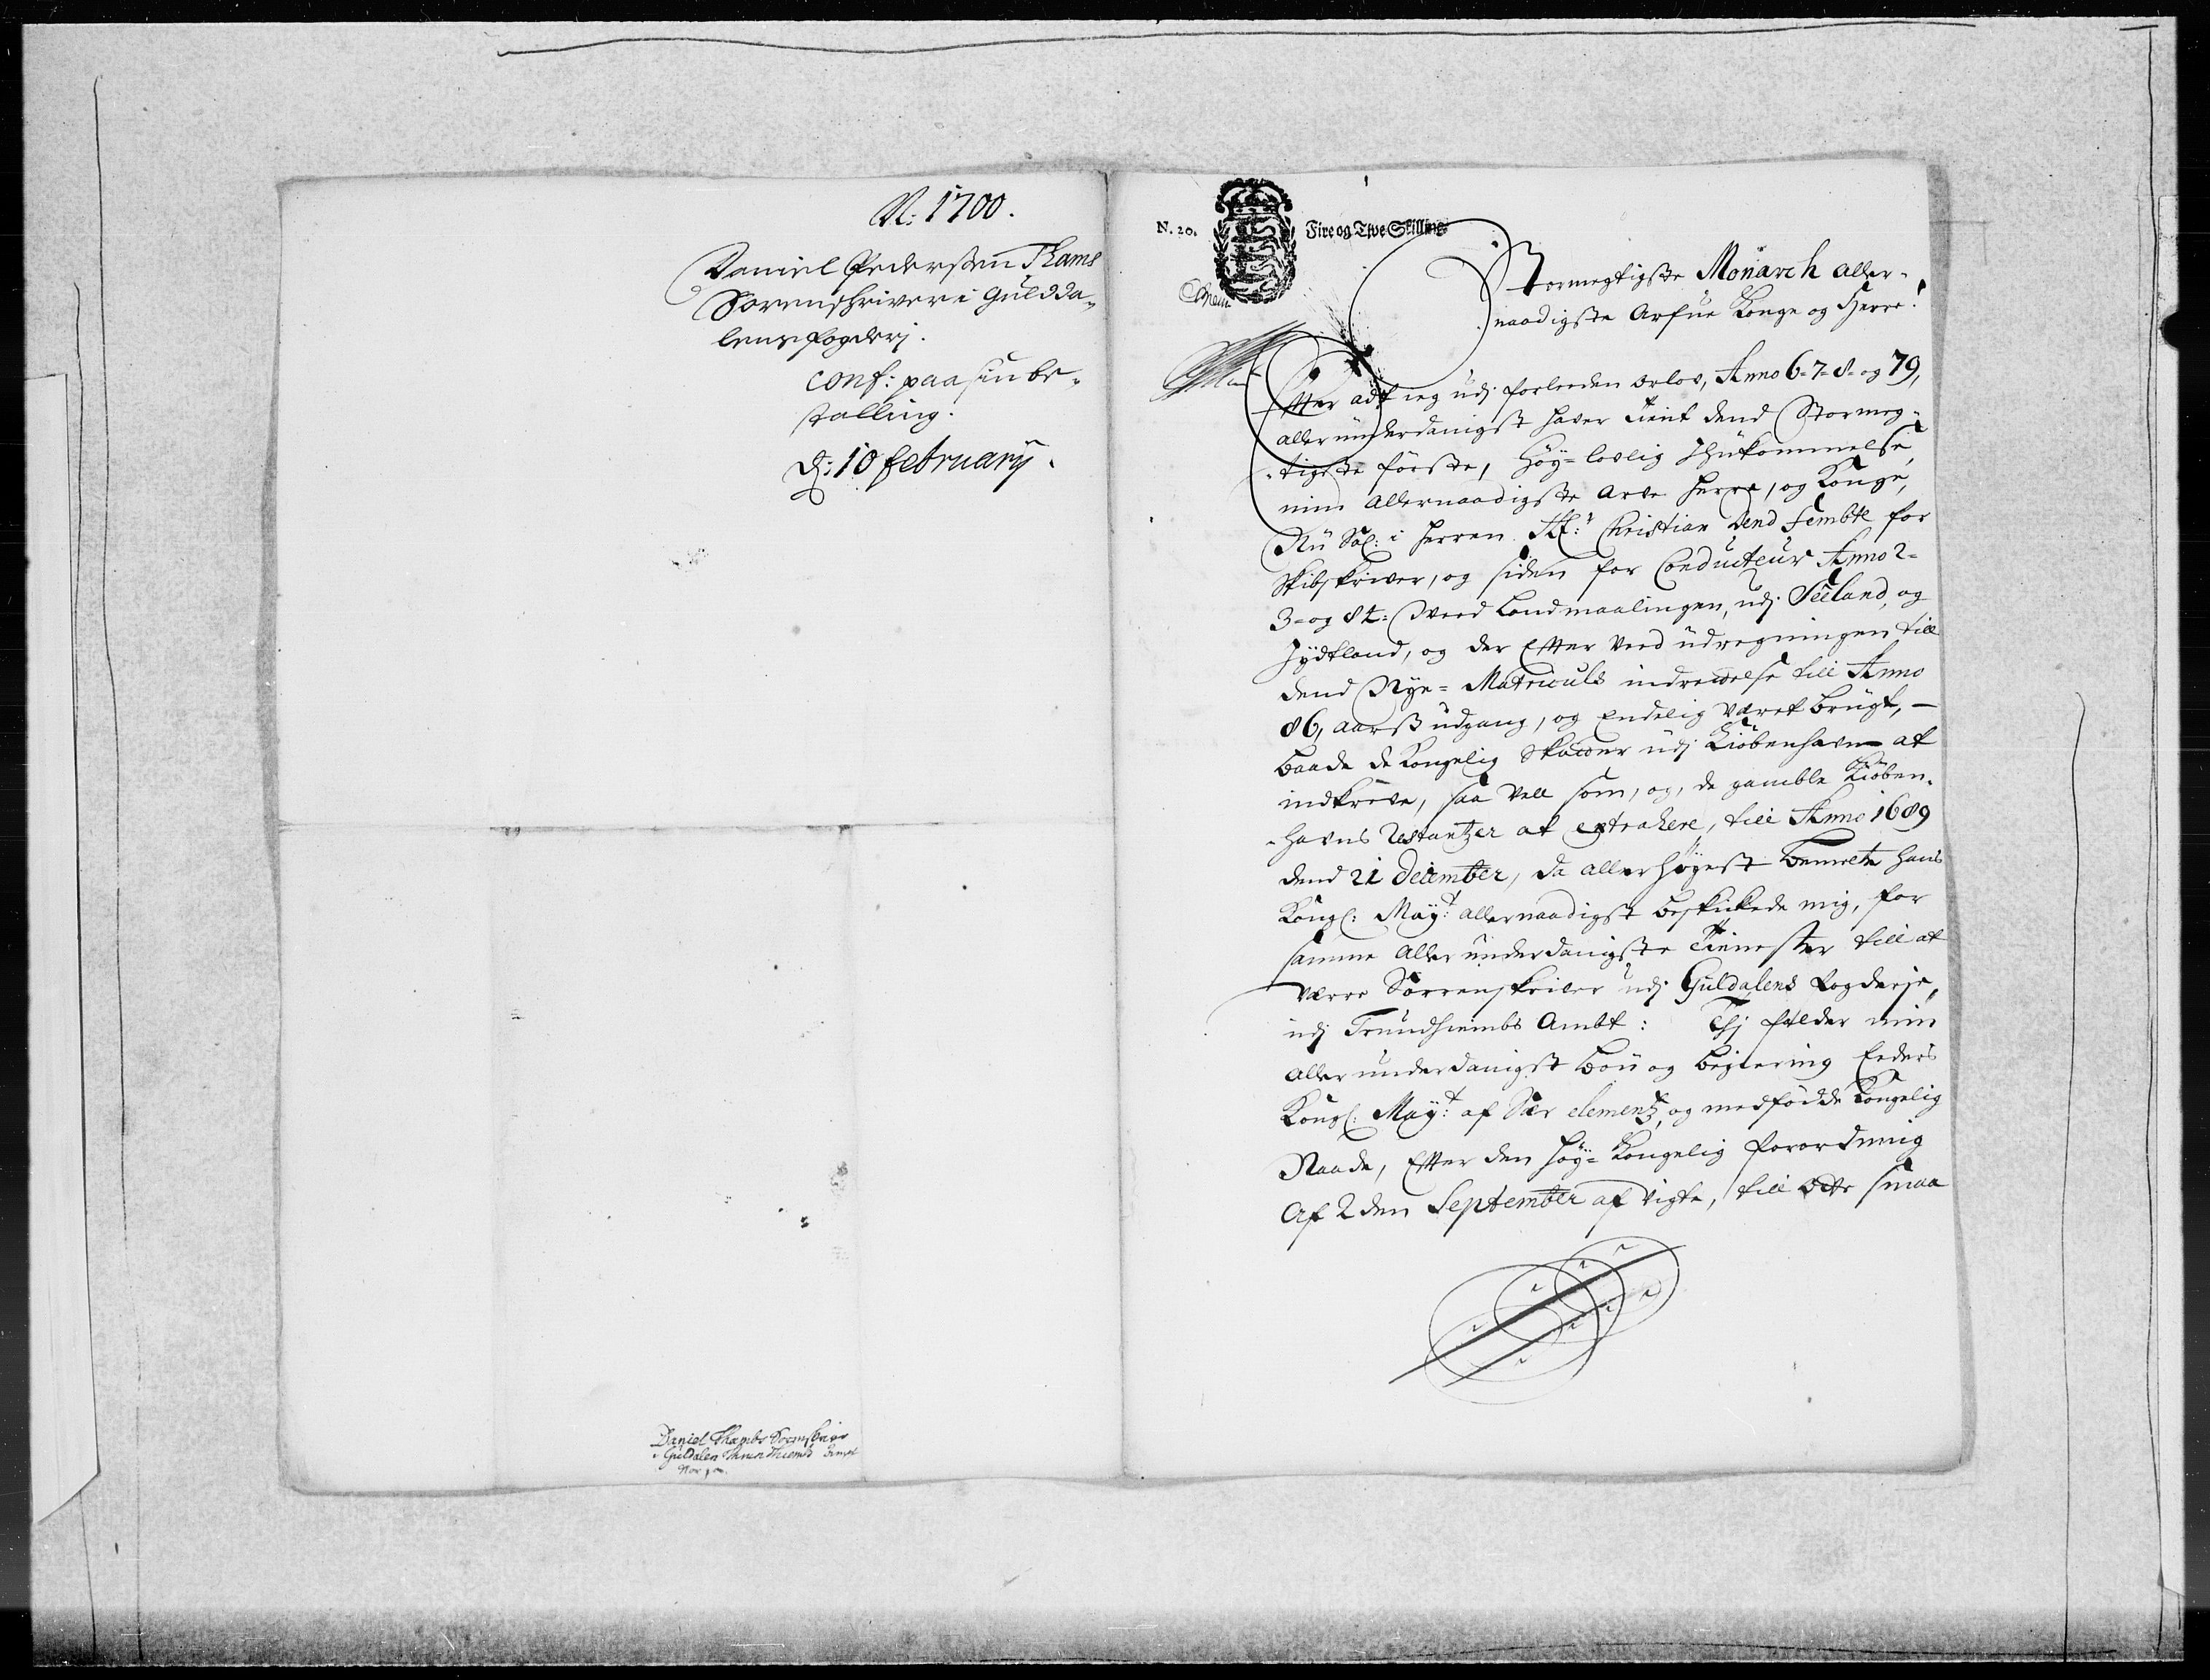 N: 1700.
Daniel Pedersenn Thams
Sorenschriver i Guldda-
lens fogderj.
conf: paa sin be-
stalling.
d: 10 february.
Daniel Thambs Sorenskriver
i Guldalen
N. 20.
Fire og Tive Skilling
Stormegtigste Monarch aller-
naadigste Arfue Konge og Herre!
Efter adt ieg udj forleeden orlov, Anno 6-7-8- og 79,
allerunderdanigst haver tient dend Stormeg-
tigste första, Höy-lovlig Ihukommelse,
min allernaadigste Arve herre, og Konge,
Nu Sal: i herren K: Christian dend fembte for
Skibskriver, og siden for Conducteur Anno 2-
3- og 84: Weed Landmaalingen, udj Seeland, og
Jydtland, og der Efter Veed udregningen till
dend Nye- Matriculs indrettelse till Anno
86, aarss udgang, og Endelig været brugt, -
baade de Kongelig Skatter udj Kiöbenhavn at
indkreve, saa vell som, og, de gamble Kiöben-
-havns Restantzer at extrahere, till Anno 1689
dend 21 December, da allerhöyest bemelte hans
Kongl: Mayt: allernaadigst beskickede mig, for
samme allerunderdanigste Tienester till at
være Sorrenskriver udj Guldalens Fogderie,
udj Trundhiembs Ambt: Thj falder min
allerunderdanigst bön og begiering Eders
Kongl: Mayt: af Sær clementz, og medfödde Kongelig
Naade, Efter den Höy- Kongelig forordning
Af 2 den September af vigte, till dette smaa